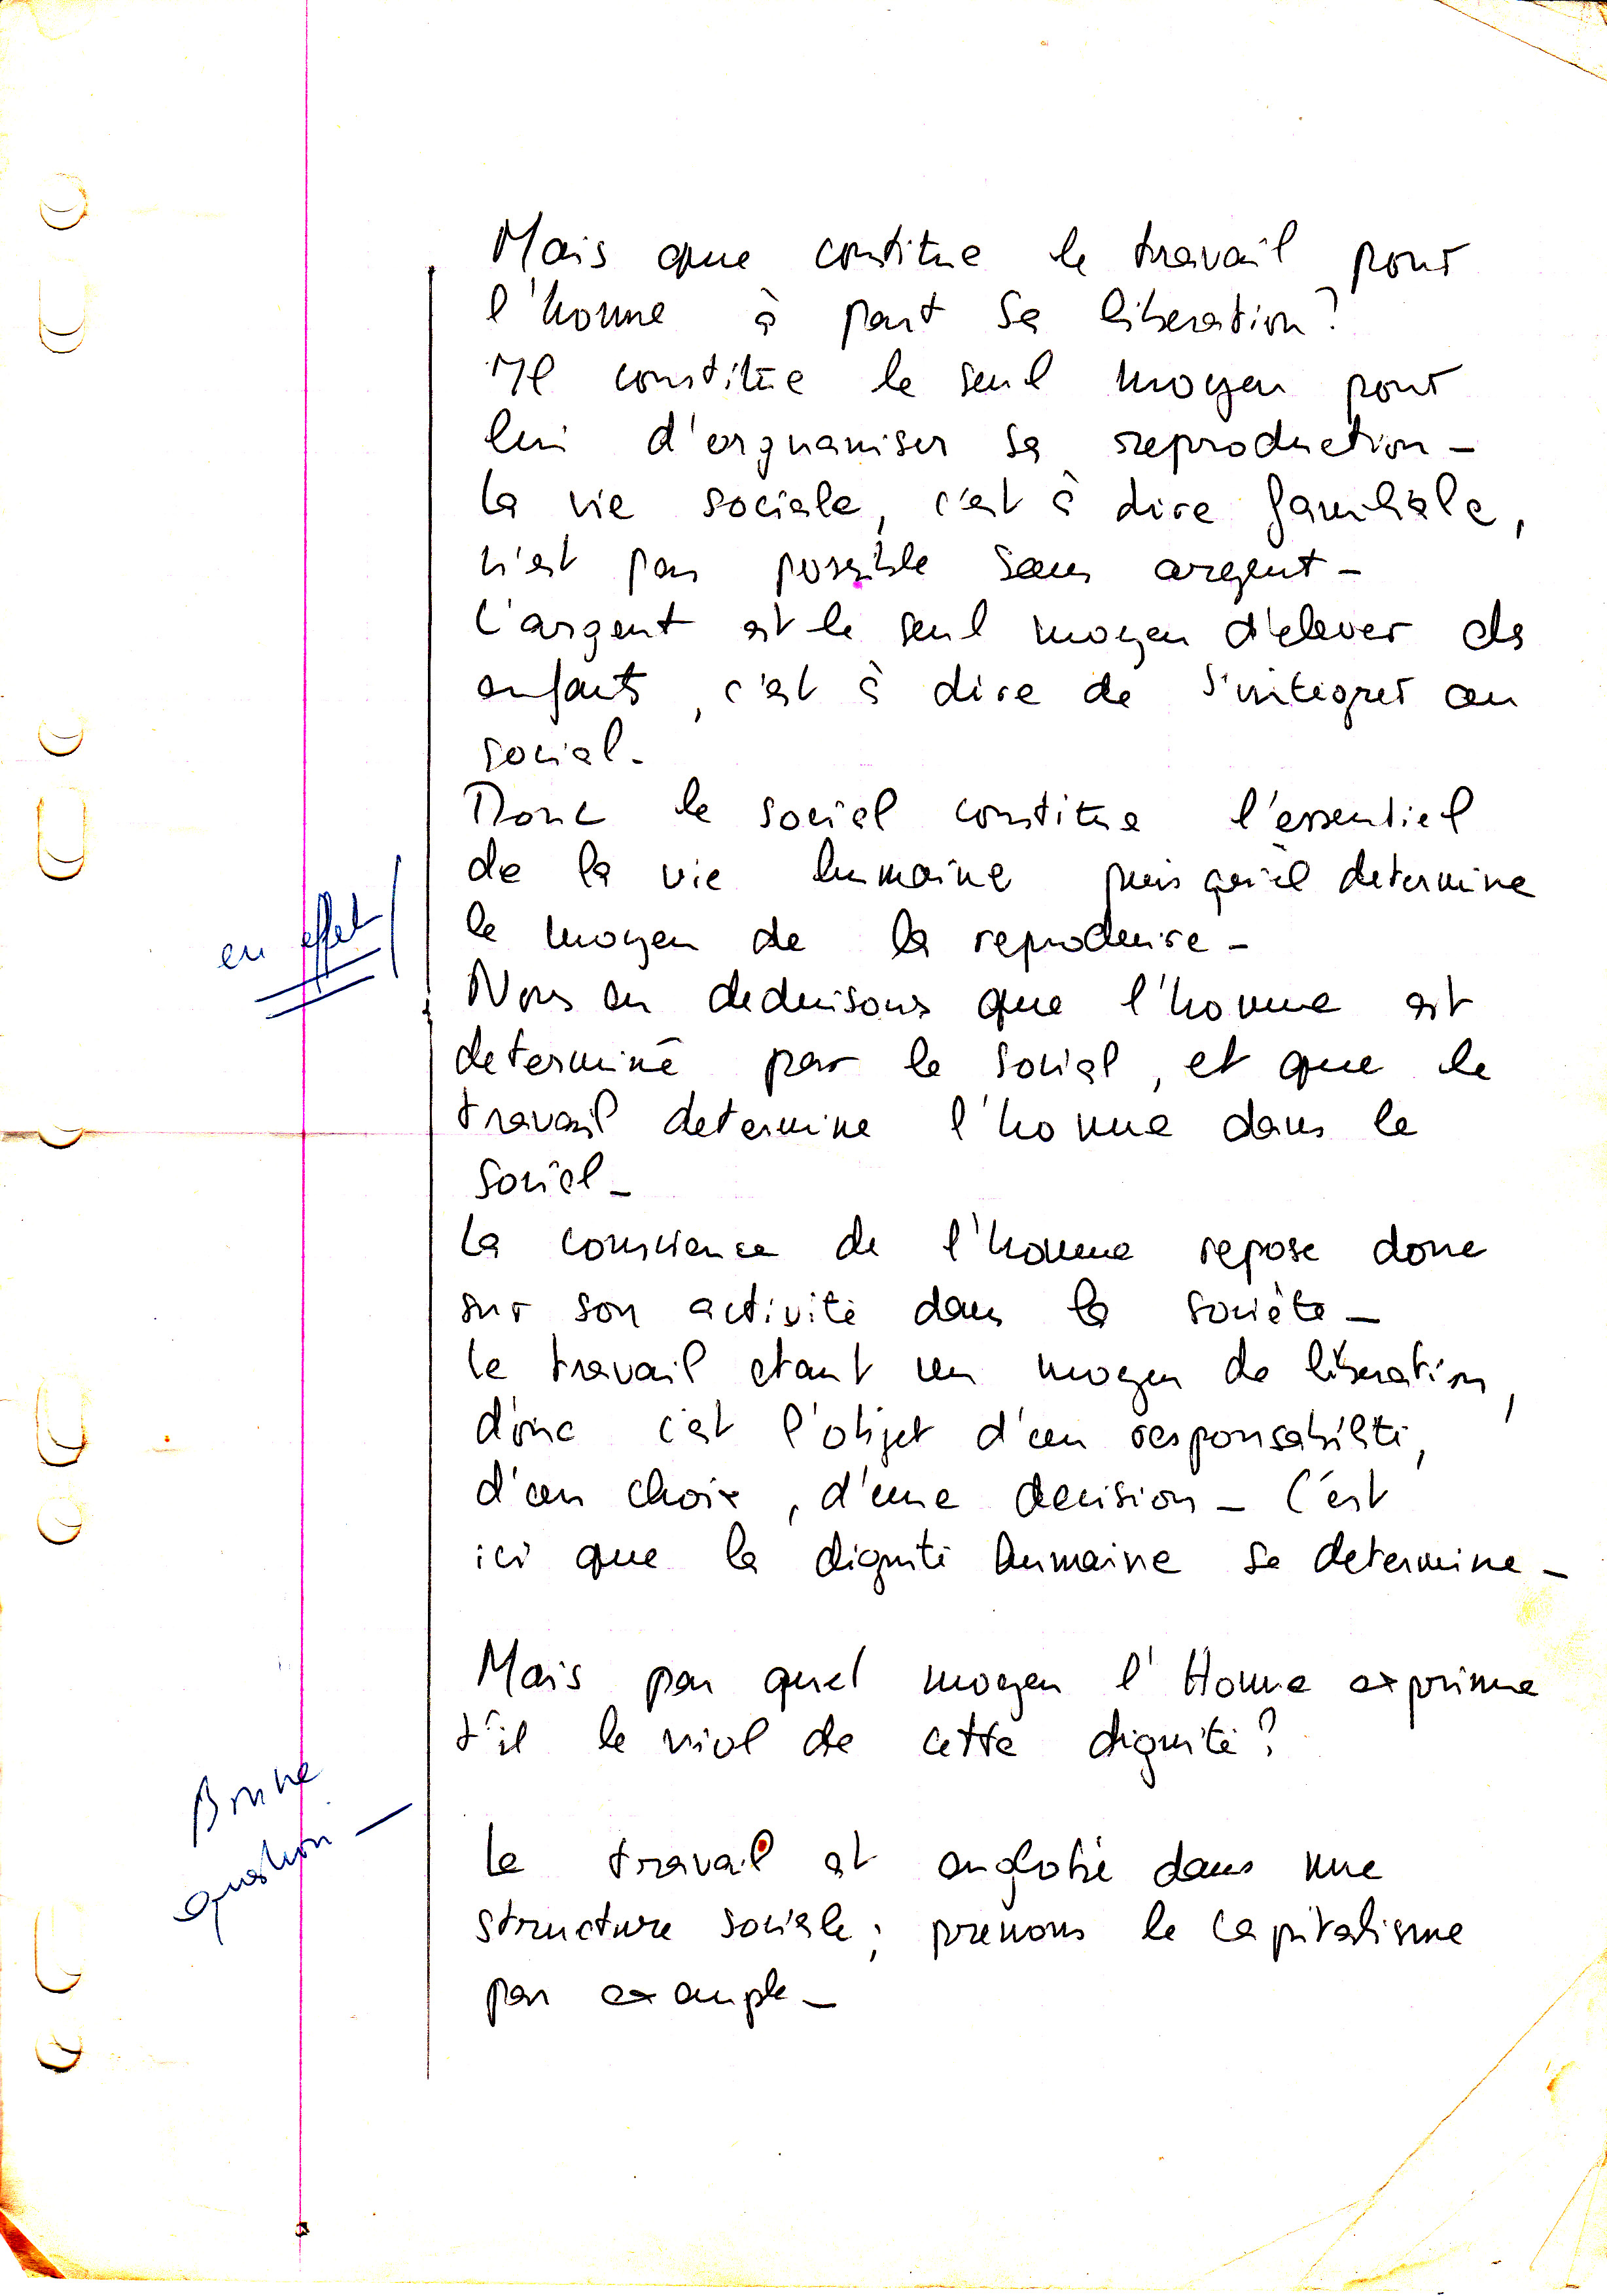 Mais que constitue le travail pour
l'homme à part sa liberation?
Il constitue le seul moyen pour
lui d'orgnaniser sa reproduction_
La vie sociale, c'est à dire familiale,
n'est pas possible sans argent_
L'argent est le seul moyen d'elever des
enfants, c'est à dire de s'integrer au
social_
Donc le social constitue l'essentiel
de la vie humaine puis qu'il determine
en effet
le moyen de la reproduire_
Nous en deduisons que l'homme est
determiné par le social, et que le
travail determine l'homme dans le
social_
La conscience de l'homme repose donc
sur son activité dans la société_
Le travail etant un moyen de liberation,
donc c'est l'objet d'un responsabilité,
d'un choix, d'une decision_ C'est
ici que la dignité humaine se determine_
Mais par quel moyen l'Homme exprime
t'il le viol de cette dignité?
Bonne
question_
Le travail est englobé dans une
structure sociale; prenons le capitalisme
par exemple_